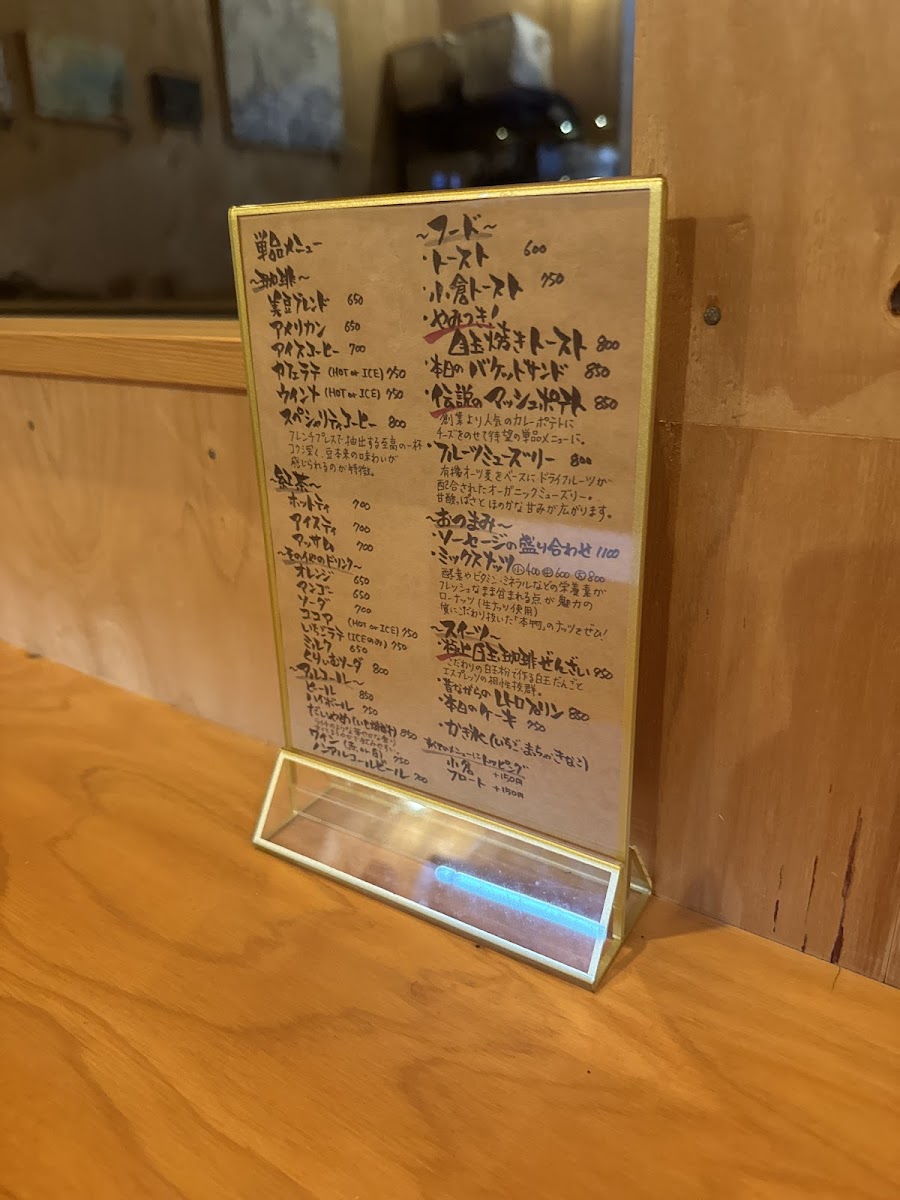 単品メニュー
~珈琲~
美豆ブレンド 650
アメリカン 650
アイスコーヒー 700
カフェラテ (HOT or ICE) 750
ウィンナ (HOT or ICE) 750
スペシャリティコーヒー 800
フレンチプレスで抽出する至高の一杯
コク深く、豆本来の味わいが
感じられるのが特徴。
~紅茶~
ホットティ 700
アイスティ 700
アッサム 700
~その他のドリンク~
オレンジ 650
マンゴー 650
ソーダ 700
ココア (HOT or ICE) 750
いちごラテ (ICEのみ) 750
ミルク 650
くりぃむソーダ 800
~アルコール~
ビール 850
ハイボール 750
だいやめ (いも焼酎) 850
ワイン (赤 or 白) 750
ノンアルコールビール 700
~フード~
・トースト 600
・小倉トースト 750
・やみつき!
目玉焼きトースト 800
・本日のバケットサンド 850
・伝説のマッシュポテト 850
創業より人気のカレーポテトに
チーズをのせて待望の単品メニューに。
・フルーツミューズリー 800
有機オーツ麦をベースにドライフルーツが
配合されたオーガニックミューズリー。
甘酸っぱさとほのかな甘みが広がります。
~おつまみ~
・ソーセージの盛り合わせ 1100
・ミックスナッツ 小400 中600 大800
酵素やビタミン・ミネラルなどの栄養素が
フレッシュなまま含まれる点が魅力の
ローナッツ(生ナッツ使用)
質にこだわり抜いた「本物」のナッツをぜひ!
~スイーツ~
・極上白玉珈琲ぜんざい 950
こだわりの白玉粉で作る白玉だんごと
エスプレッソの相性抜群。
・昔ながらのレトロプリン 850
・本日のケーキ 750
・かき氷(いちご・まっちゃ・きなこ)
すべてのメニューにトッピング
小倉 +150円
フロート +150円